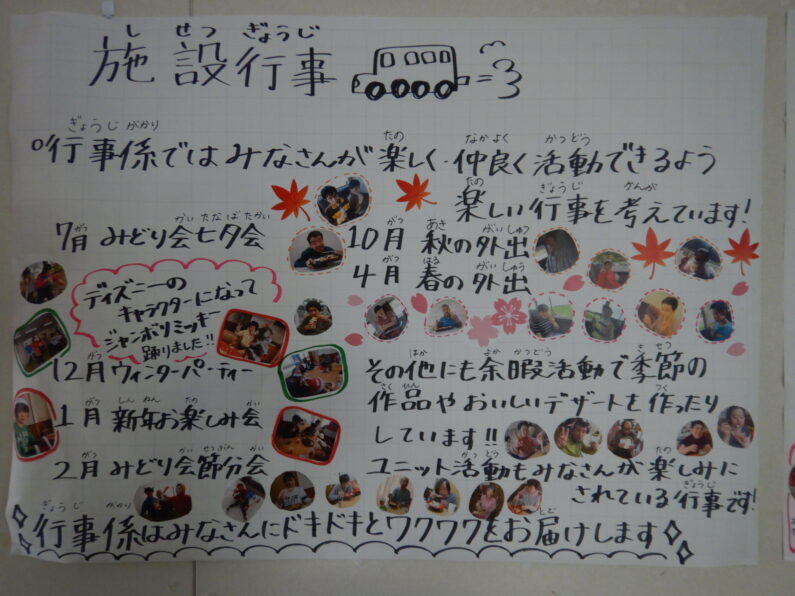 施設行事
しせつぎょうじ
ぎょうじがかり
○行事係ではみなさんが楽しく・仲良く活動できるよう
たの なかよく かつどう
楽しい行事を考えています!
たの ぎょうじ かんが
7月 みどり会七夕会
がつ かい たなばたかい
10月 秋の外出
がつ あき がいしゅつ
4月 春の外出
がつ はる がいしゅつ
ディズニーの
キャラクターになって
ジャンボリミッキー
踊りました!!
12月 ウィンターパーティー
がつ
1月 新年お楽しみ会
がつ しんねん たの かい
2月 みどり会節分会
がつ かい せつぶん かい
その他にも余暇活動で季節の
ほか よか かつどう きせつ
作品やおいしいデザートを作ったり
さくひん つく
しています!!
ユニット活動もみなさんが楽しみに
かつどう たの
されている行事です!
ぎょうじ
行事係はみなさんにドキドキとワクワクをお届けします
ぎょうじ がかり とど